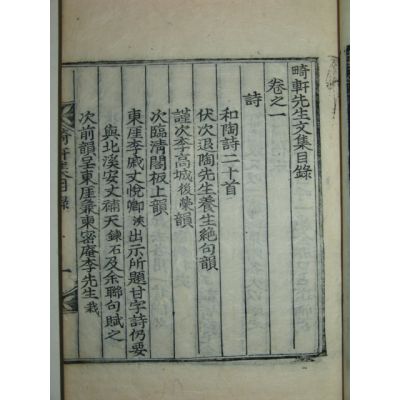 畸軒先生文集目錄
卷之一
詩
和陶詩二十首
伏次退陶先生養生絶句韻
謹次李高城後榮韻
次臨清閣板上韻
東厓李戚丈悅卿浹出示所題甘字詩仍要
與北溪安丈補天鍊石及余聯句賦之
次前韻呈東厓兼柬密庵李先生栽